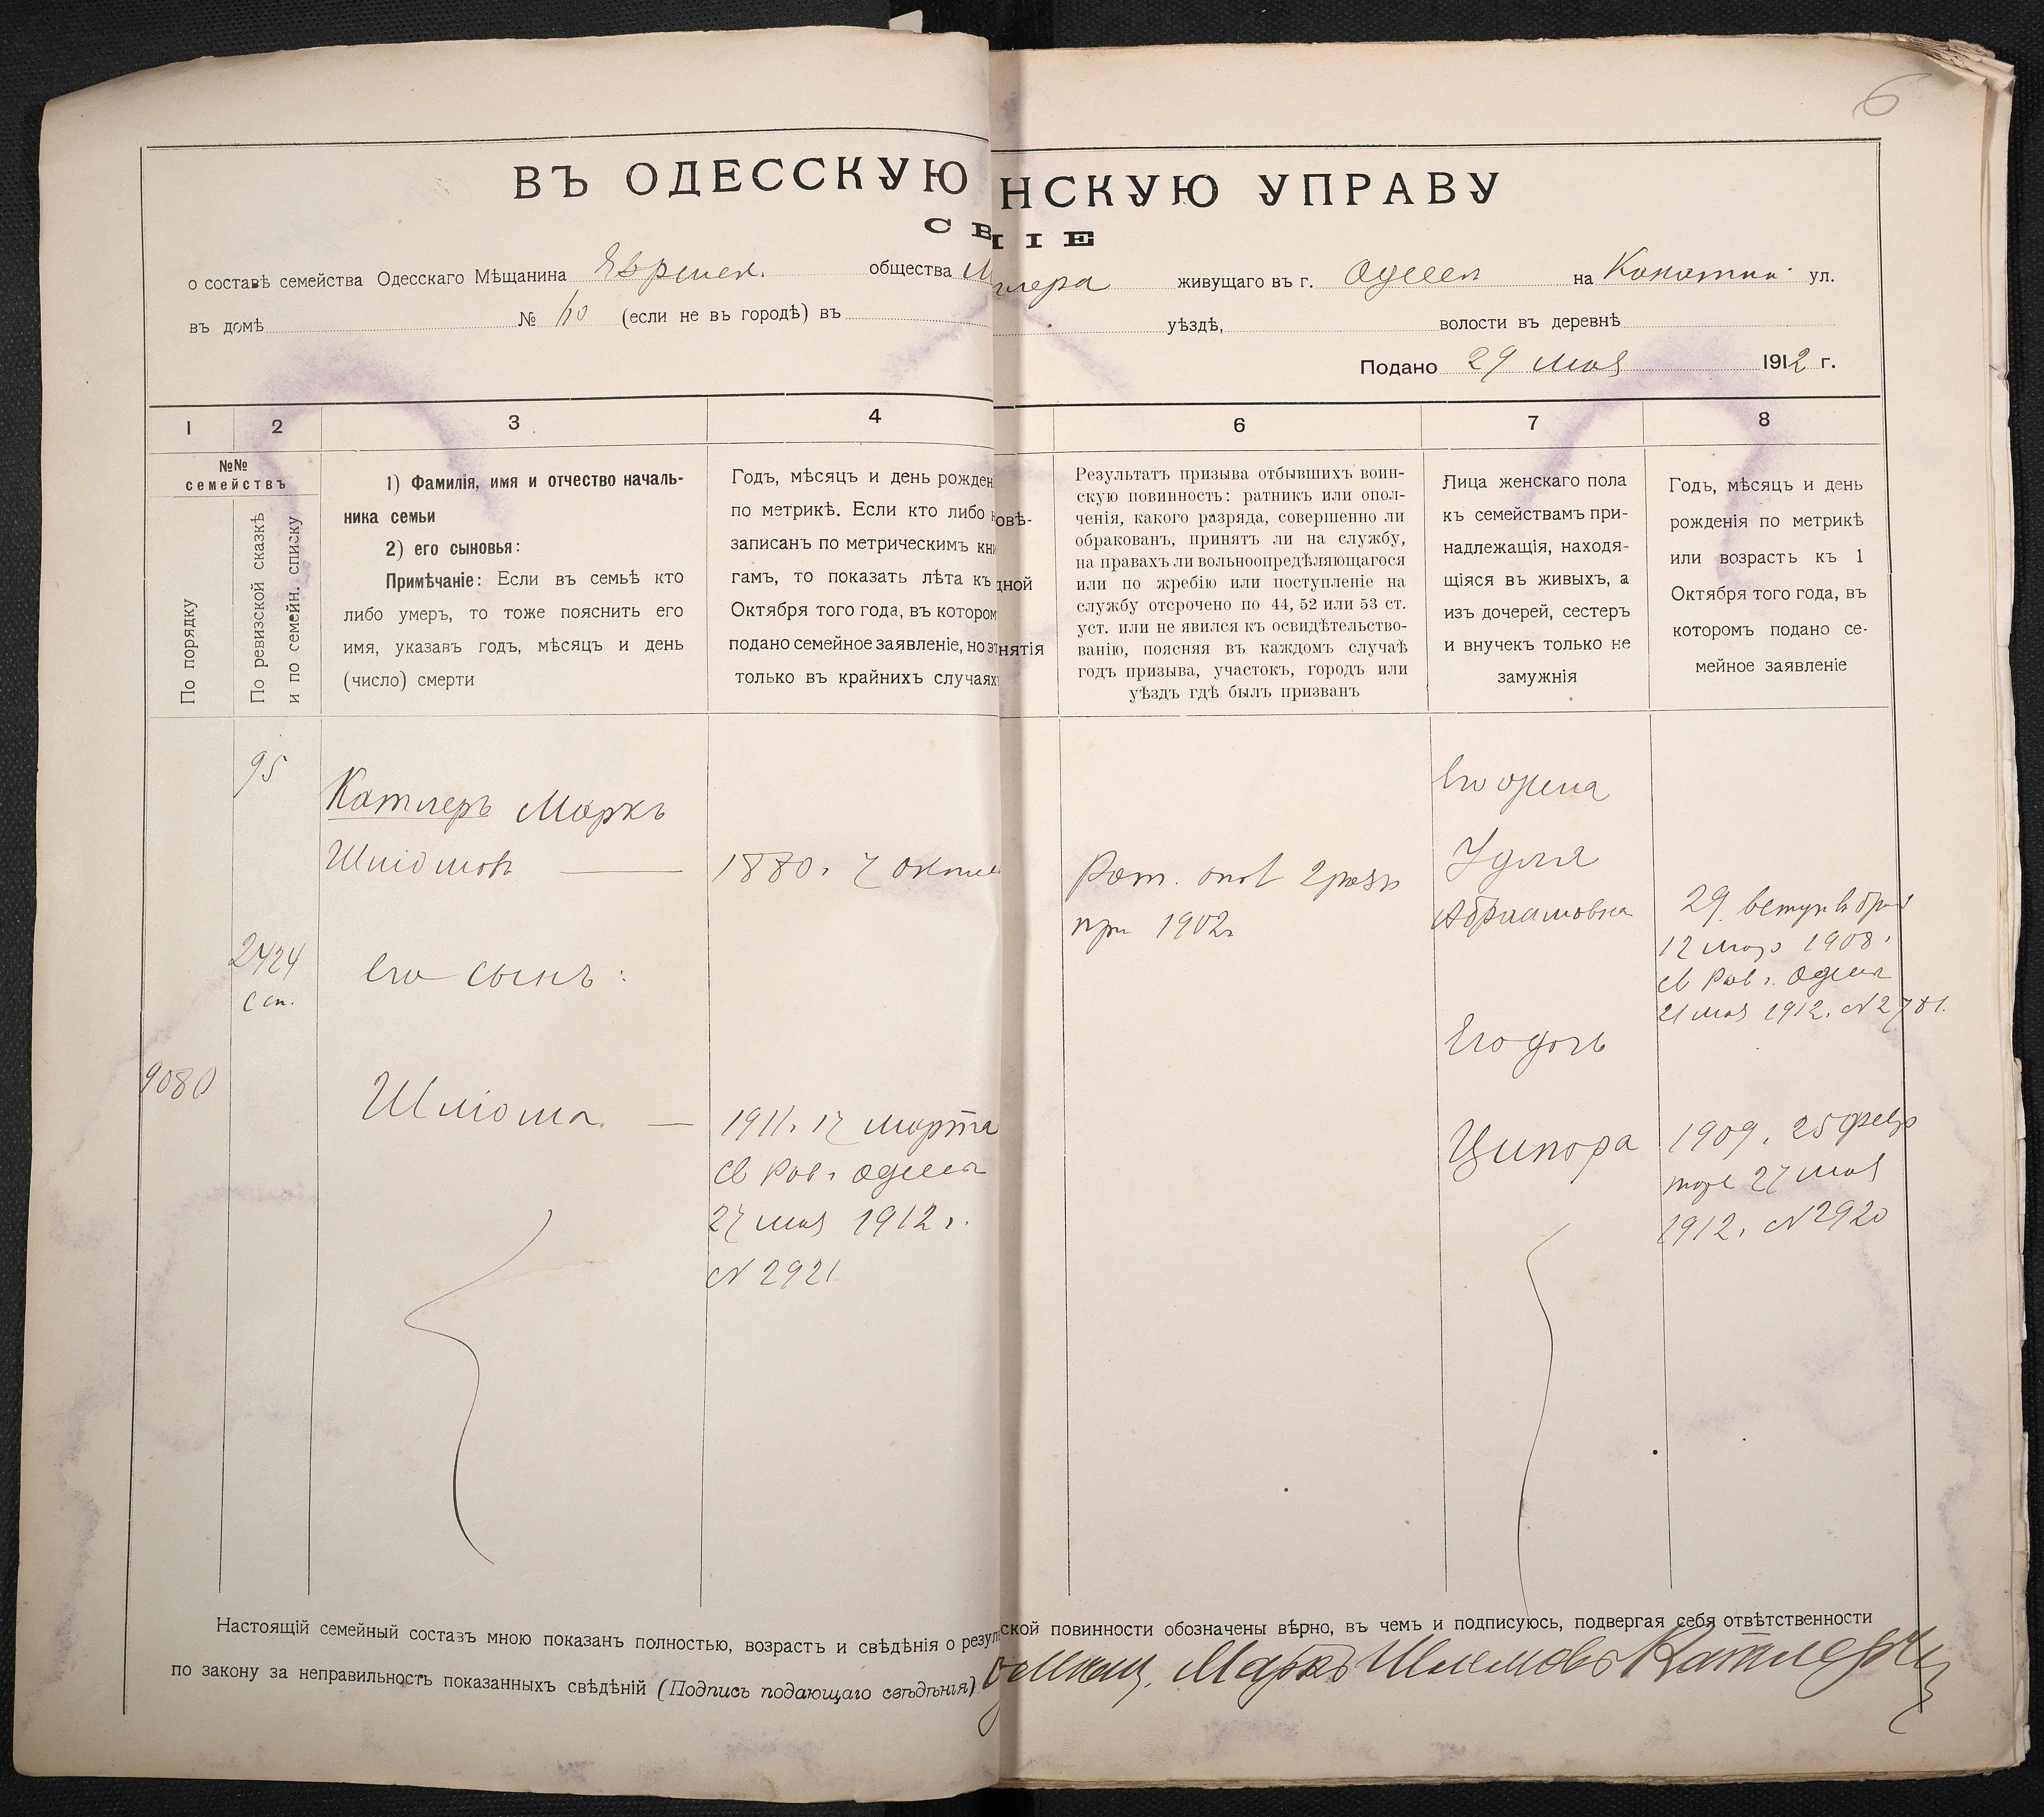 6
ВЪ ОДЕССКУЮ НСКУЮ УПРАВУ
СВ ІЕ
о составѣ семейства Одесскаго Мѣщанина общества живущаго въ г. Одессѣ на Канатн. ул.
въ домѣ № (если не въ городѣ) въ уѣздѣ, волости въ деревнѣ
Подано 29 мая 1912 г.
1 2 3 4 6 7 8
№№
семействъ
По порядку
По ревизской сказкѣ
и по семейн. списку
1) Фамилія, имя и отчество началь-
ника семьи
2) его сыновья:
Примѣчаніе: Если въ семьѣ кто
либо умеръ, то тоже пояснить его
имя, указавъ годъ, мѣсяцъ и день
(число) смерти
Годъ, мѣсяцъ и день рожден
по метрикѣ. Если кто либо н
записанъ по метрическимъ кни
гамъ, то показать лѣта къ
Октября того года, въ котором
подано семейное заявленіе, но эт
только въ крайнихъ случаях
овѣ-
дной
нятія
Результатъ призыва отбывшихъ воин-
скую повинность: ратникъ или опол-
ченія, какого разряда, совершенно ли
обракованъ, принятъ ли на службу,
на правахъ ли вольноопредѣляющагося
или по жребію или поступленіе на
службу отсрочено по 44, 52 или 53 ст.
уст. или не явился къ освидѣтельство-
ванію, поясняя въ каждомъ случаѣ
годъ призыва, участокъ, городъ или
уѣздъ гдѣ былъ призванъ
Лица женскаго пола
къ семействамъ при-
надлежащія, находя-
щіяся въ живыхъ, а
изъ дочерей, сестеръ
и внучекъ только не
замужнія
Годъ, мѣсяцъ и день
рожденія по метрикѣ
или возрастъ къ 1
Октября того года, въ
которомъ подано се-
мейное заявленіе
95
2424
с сп.
9080
Катлеръ Маркъ
Шліомов
его сынъ:
Шліома
1880. 7 октя
1911. 17 марта
св Рав. Одессы
27 мая 1912 г.
N 2921
Рат. опол 2 разр
при 1902
Его жена
Удля
Абрамовна
Его дочь
Ципора
29. вступ в бра
12 1908.
св Рав. г. Одессы
21 мая 1912. N 2781.
1909. 25 февр
тоже 27 мая
1912. N 2920
Настоящій семейный составъ мною показанъ полностью, возрастъ и свѣдѣнія о резул ской повинности обозначены вѣрно, въ чемъ и подписуюсь, подвергая себя отвѣтственности
по закону за неправильность показанныхъ свѣдѣній (Подпись подающаго свѣдѣнія) Маркъ Шлемовъ Катлеръ